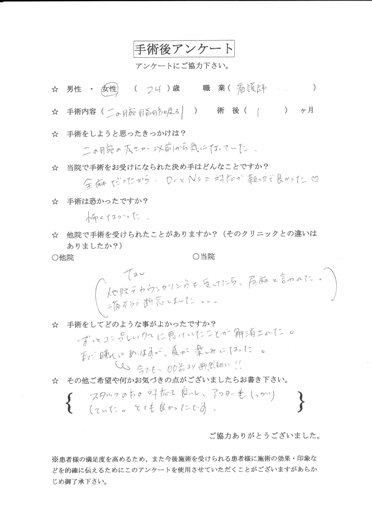 手術後アンケート
アンケートにご協力下さい。
☆ 男性 ・ 女性 ( 24 ) 歳 職 業 ( 看護師 )
☆ 手術内容 ( 二の腕脂肪吸引 ) 術 後 ( 1 ) ヶ月
☆ 手術をしようと思ったきっかけは?
二の腕の太さが以前から気になっていた。
☆ 当院で手術をお受けになられた決め手はどんなことですか?
全麻だったから。Dr.とNsの対応が親切で良かった♡
☆ 手術は恐かったですか?
怖くなかった。
☆ 他院で手術を受けられたことがありますか? (そのクリニックとの違いは
ありましたか?)
○他院 ○当院
他院でカウンセリングを受けたら、局麻と言われた。
☆ 手術をしてどのような事がよかったですか?
ずっとコンプレックスに
夏が楽しみになった。
☆ その他ご希望や何かお気づきの点がございましたらお書き下さい。
スタッフの方の対応も良いし、アフターもしっかり
していた。とても良かったです。
ご協力ありがとうございました。
※患者様の満足度を高めるため、また今後施術を受けられる患者様に施術の効果・印象な
どを的確に伝えるためにこのアンケートを使用させていただくことがございますがあらか
じめ御了承下さい。